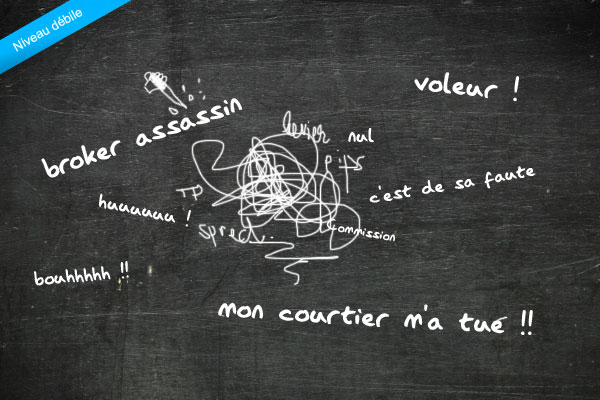 Niveau débile
voleur !
broker assassin
levier
nul
pips
c'est de sa faute
TP
haaaaaaa !
spread..
commission
bouhhhhh !!
mon courtier m'a tué !!